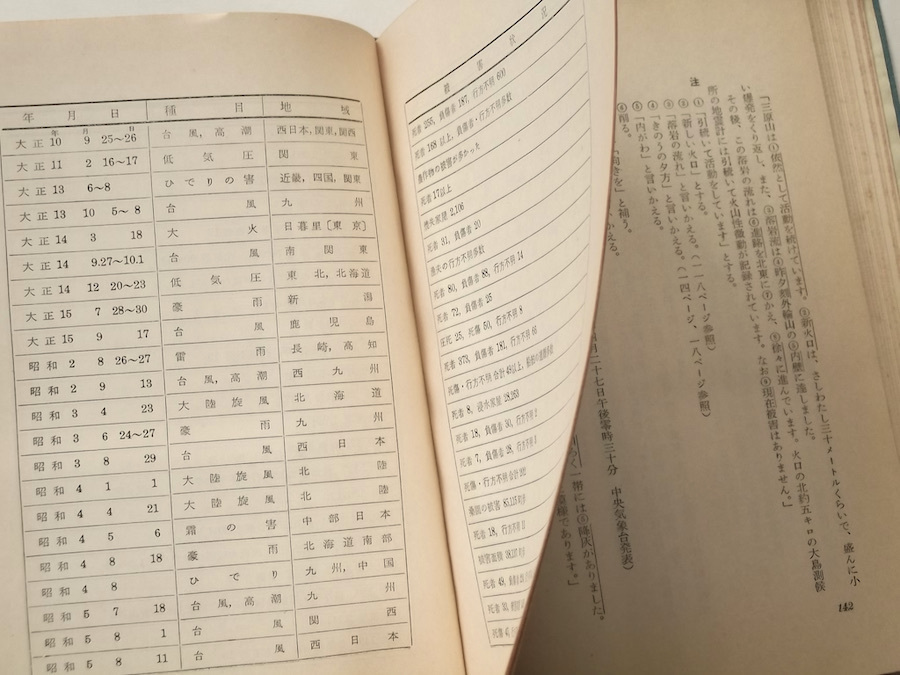 年 月 日 種 目 地 域
年 月 日
大正 10 9 25~26 台風,高潮 西日本,関東,関西
大正 11 2 16~17 低気圧 関東
大正 13 6~8 ひでりの害 近畿,四国,関東
大正 13 10 5~8 台風 九州
大正 14 3 18 大火 日暮里[東京]
大正 14 9.27~10.1 台風 南関東
大正 14 12 20~23 低気圧 東北,北海道
大正 15 7 28~30 豪雨 新潟
大正 15 9 17 台風 鹿児島
昭和 2 8 26~27 雷雨 長崎,高知
昭和 2 9 13 台風,高潮 西九州
昭和 3 4 23 大陸旋風 北海道
昭和 3 6 24~27 豪雨 九州
昭和 3 8 29 台風 西日本
昭和 4 1 1 大陸旋風 北陸
昭和 4 4 21 大陸旋風 北陸
昭和 4 5 6 霜の害 中部日本
昭和 4 8 18 豪雨 北海道南部
昭和 4 8 ひでり 九州,中国
昭和 5 7 18 台風,高潮 九州
昭和 5 8 1 台風 関西
昭和 5 8 11 台風 西日本
被 害 状 況
死者 255, 負傷者 187, 行方不明 600
死者 168 以上, 負傷者・行方不明多数
農作物の被害が多かった
死者 17 以上
焼失家屋 2,106
死者 31, 負傷者 20
漁夫の行方不明多数
死者 80, 負傷者 88, 行方不明 14
死者 72, 負傷者 25
圧死 25, 死傷 50, 行方不明 8
死者 373, 負傷者 181, 行方不明
死傷・行方不明合計 49以上,
死者 8, 浸水家屋 18,163
死者 18, 負傷者 30, 行方不明
死者 7, 負傷者 28, 行方不明
死傷・行方不明合計
桑園の被害
死者 18, 行方不明
被害面積
死者 49,
死者
死傷
「三原山は①依然として活動を続けています。②新火口は、さしわたし三十メートルくらいで、盛んに小
い爆発をくり返し、また、③溶岩流は④昨夕⑤外輪山の⑤内壁に達しました。
その後、この溶岩の流れは⑥進路を北東に⑦かえ、⑧徐々に進んでいます。火口の北約五キロの大島測候
所の地震計には引続いて火山性微動が記録されています。なお⑨現在被害はありません。」
注
①「引続いて活動をしています」とする。
②「新しい火口」と言いかえる。(一一八ページ参照)
③「溶岩の流れ」と言いかえる。(一四ページ、一八ページ参照)
④「きのうの夕方」と言いかえる。
⑤「内がわ」と言いかえる。
「向きを」と補う。
かえる。
月二十七日午後零時三十分 中央気象台発表)
一帯には⑤降灰がありました。
模様であります。」
142